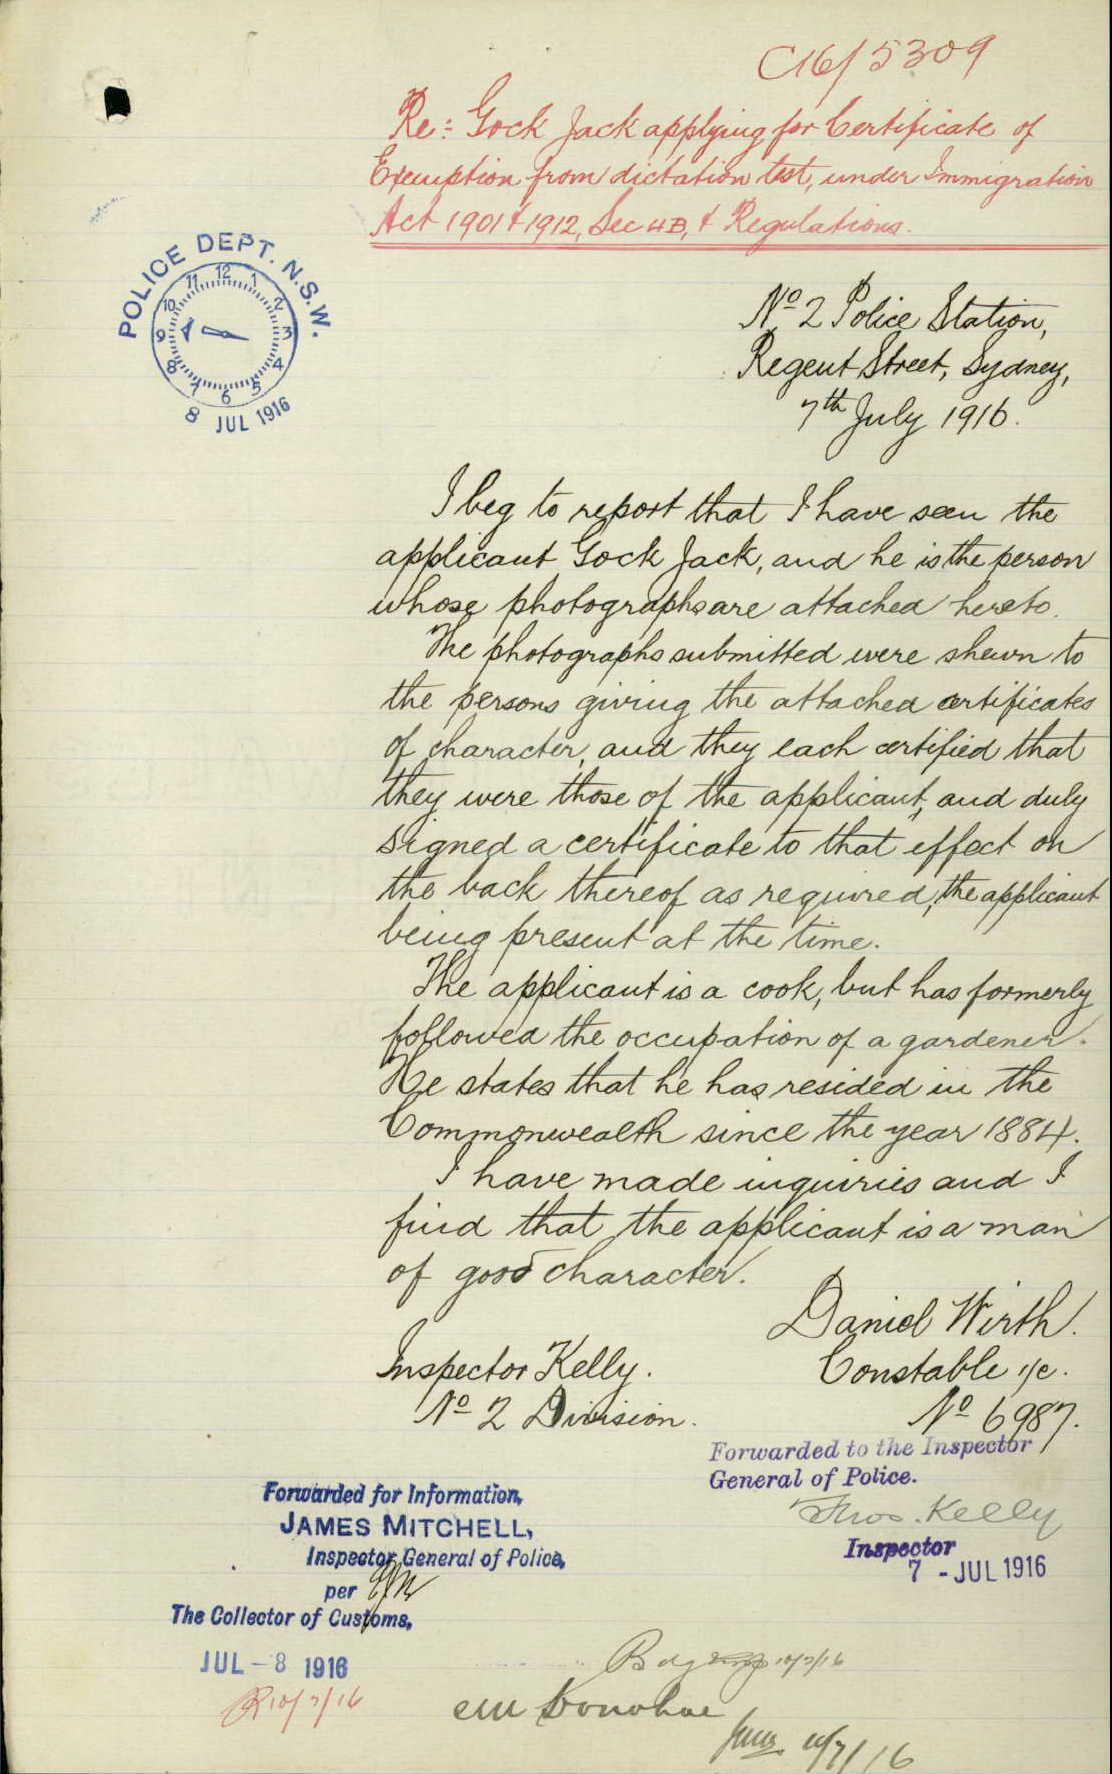 C16/5309
Re:- Gock Jack applying for Certificate of
Exemption from dictation test, under Immigration
Act 1901 & 1912, Sec 4B, & Regulations.
POLICE DEPT. N.S.W.
12
1
2
3
4
5
6
7
8
9
10
11
8 JUL 1916
No 2 Police Station,
Regent Street, Sydney,
7th July 1916.
I beg to report that I have seen the
applicant Gock Jack, and he is the person
whose photographs are attached hereto.
The photographs submitted were shewn to
the persons giving the attached certificates
of character, and they each certified that
they were those of the applicant, and duly
signed a certificate to that effect on
the back thereof as required, the applicant
being present at the time.
The applicant is a cook, but has formerly
followed the occupation of a gardener.
He states that he has resided in the
Commonwealth since the year 1884.
I have made inquiries and I
find that the applicant is a man
of good character.
Daniel Wirth.
Constable 1/c.
No 6987.
Inspector Kelly.
No 2 Division.
Forwarded to the Inspector
General of Police.
Thos. Kelly
Inspector
7 - JUL 1916
Forwarded for Information,
JAMES MITCHELL,
Inspector General of Police,
per
The Collector of Customs,
JUL - 8 1916
10/7/16
10/7/16
Donohoe
/7/16